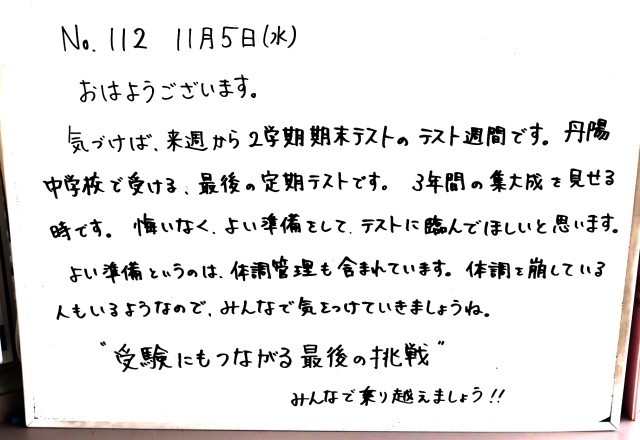 No. 112 11月5日(水)
おはようございます。
気づけば、来週から2学期期末テストのテスト週間です。丹陽
中学校で受ける、最後の定期テストです。 3年間の集大成を見せる
時です。 悔いなく、よい準備をして、テストに臨んでほしいと思います。
よい準備というのは、体調管理も含まれています。体調を崩している
人もいるようなので、みんなで気をつけていきましょうね。
"受験にもつながる最後の挑戦"
みんなで乗り越えましょう!!